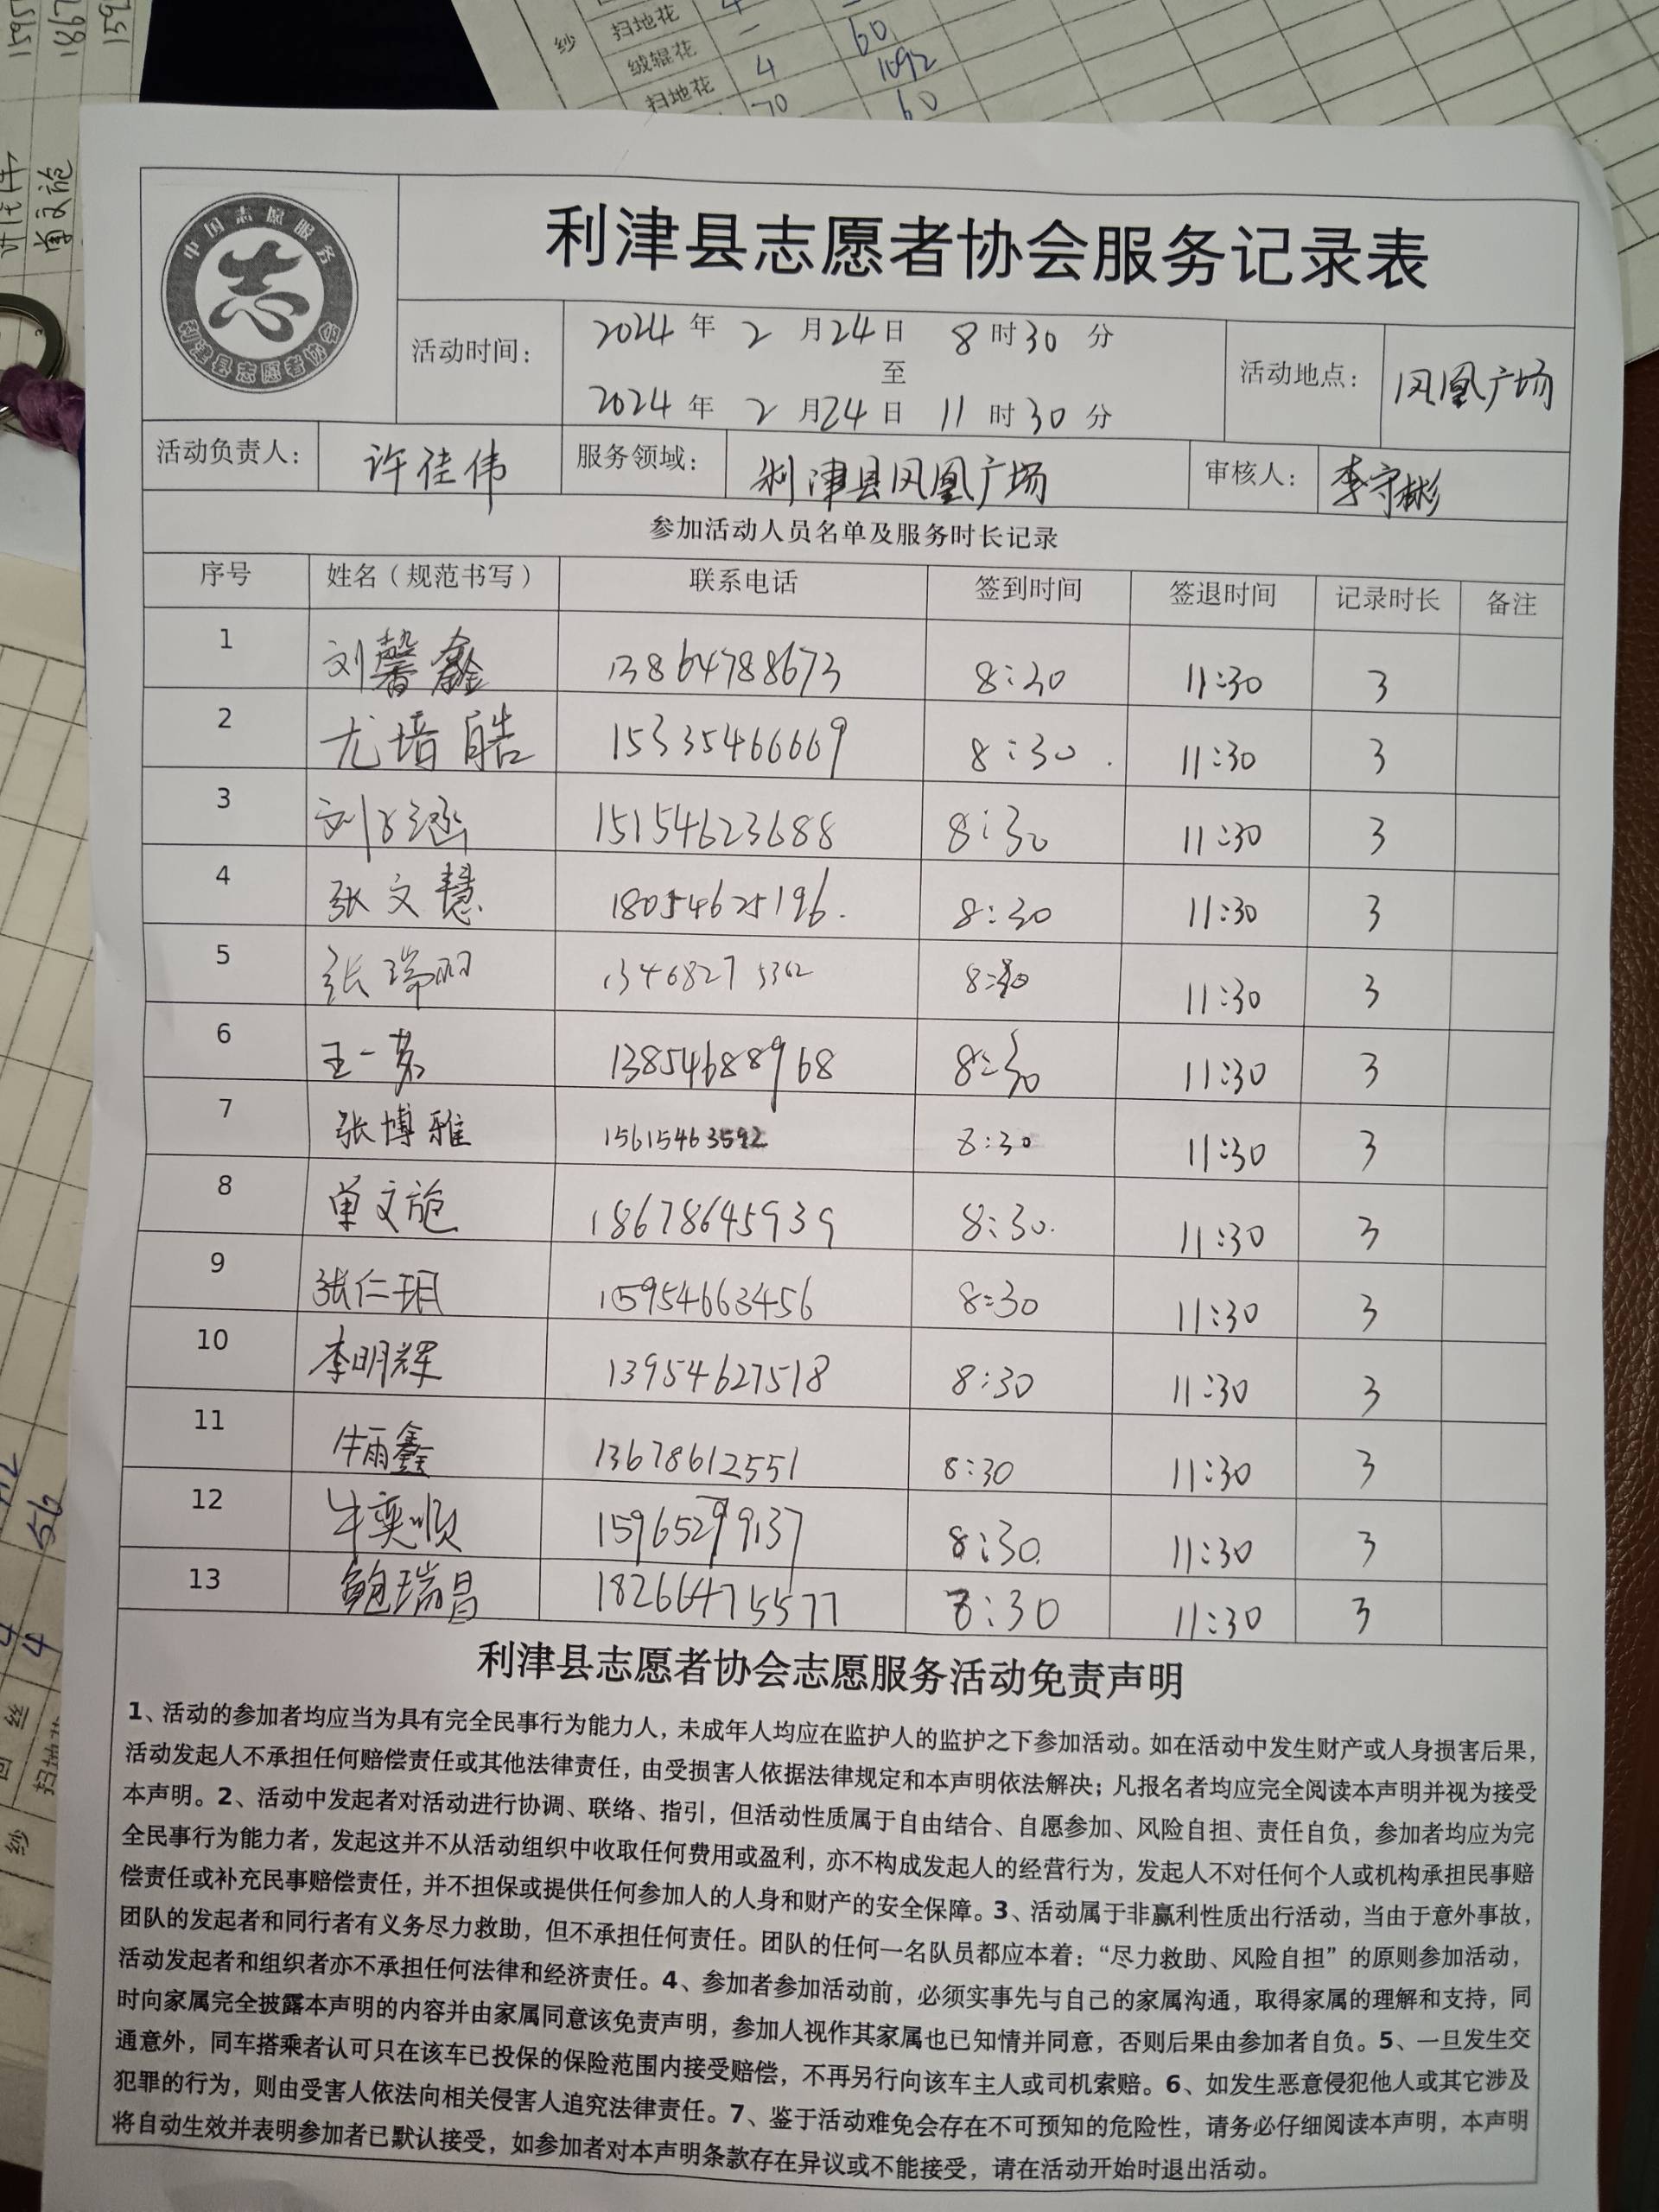 扫地花
纱
绒辊花
一
60
扫地花
4
1092
70
60
单文旎
中国志愿服务
志
利津县志愿者协会
利津县志愿者协会服务记录表
活动时间：
2024 年 2 月 24 日 8 时 30 分
至
2024 年 2 月 24 日 11 时 30 分
活动地点：
凤凰广场
活动负责人： 许佳伟 服务领域： 利津县凤凰广场 审核人： 李守彬
参加活动人员名单及服务时长记录
序号 姓名（规范书写） 联系电话 签到时间 签退时间 记录时长 备注
1 刘馨鑫 13864788673 8:30 11:30 3
2 尤培皓 15335466669 8:30 11:30 3
3 刘 涵 15154623688 8:30 11:30 3
4 张文慧 18054625196. 8:30 11:30 3
5 张瑞羽 13468275362 8:30 11:30 3
6 王一茗 13854688968 8:30 11:30 3
7 张博雅 15615463592 8:30 11:30 3
8 单文旎 18678645939 8:30. 11:30 3
9 张仁玥 15954663456 8:30 11:30 3
10 李明辉 13954627518 8:30 11:30 3
11 牛雨鑫 13678612551 8:30 11:30 3
12 牛奕顺 15965299137 8:30. 11:30 3
13 鲍瑞昌 18266475577 8:30 11:30 3
利津县志愿者协会志愿服务活动免责声明
1、活动的参加者均应当为具有完全民事行为能力人，未成年人均应在监护人的监护之下参加活动。如在活动中发生财产或人身损害后果，
活动发起人不承担任何赔偿责任或其他法律责任，由受损害人依据法律规定和本声明依法解决；凡报名者均应完全阅读本声明并视为接受
本声明。2、活动中发起者对活动进行协调、联络、指引，但活动性质属于自由结合、自愿参加、风险自担、责任自负，参加者均应为完
全民事行为能力者，发起这并不从活动组织中收取任何费用或盈利，亦不构成发起人的经营行为，发起人不对任何个人或机构承担民事赔
偿责任或补充民事赔偿责任，并不担保或提供任何参加人的人身和财产的安全保障。3、活动属于非赢利性质出行活动，当由于意外事故，
团队的发起者和同行者有义务尽力救助，但不承担任何责任。团队的任何一名队员都应本着：“尽力救助、风险自担”的原则参加活动，
活动发起者和组织者亦不承担任何法律和经济责任。4、参加者参加活动前，必须实事先与自己的家属沟通，取得家属的理解和支持，同
时向家属完全披露本声明的内容并由家属同意该免责声明，参加人视作其家属也已知情并同意，否则后果由参加者自负。5、一旦发生交
通意外，同车搭乘者认可只在该车已投保的保险范围内接受赔偿，不再另行向该车主人或司机索赔。6、如发生恶意侵犯他人或其它涉及
犯罪的行为，则由受害人依法向相关侵害人追究法律责任。7、鉴于活动难免会存在不可预知的危险性，请务必仔细阅读本声明，本声明
将自动生效并表明参加者已默认接受，如参加者对本声明条款存在异议或不能接受，请在活动开始时退出活动。
56
4
纱